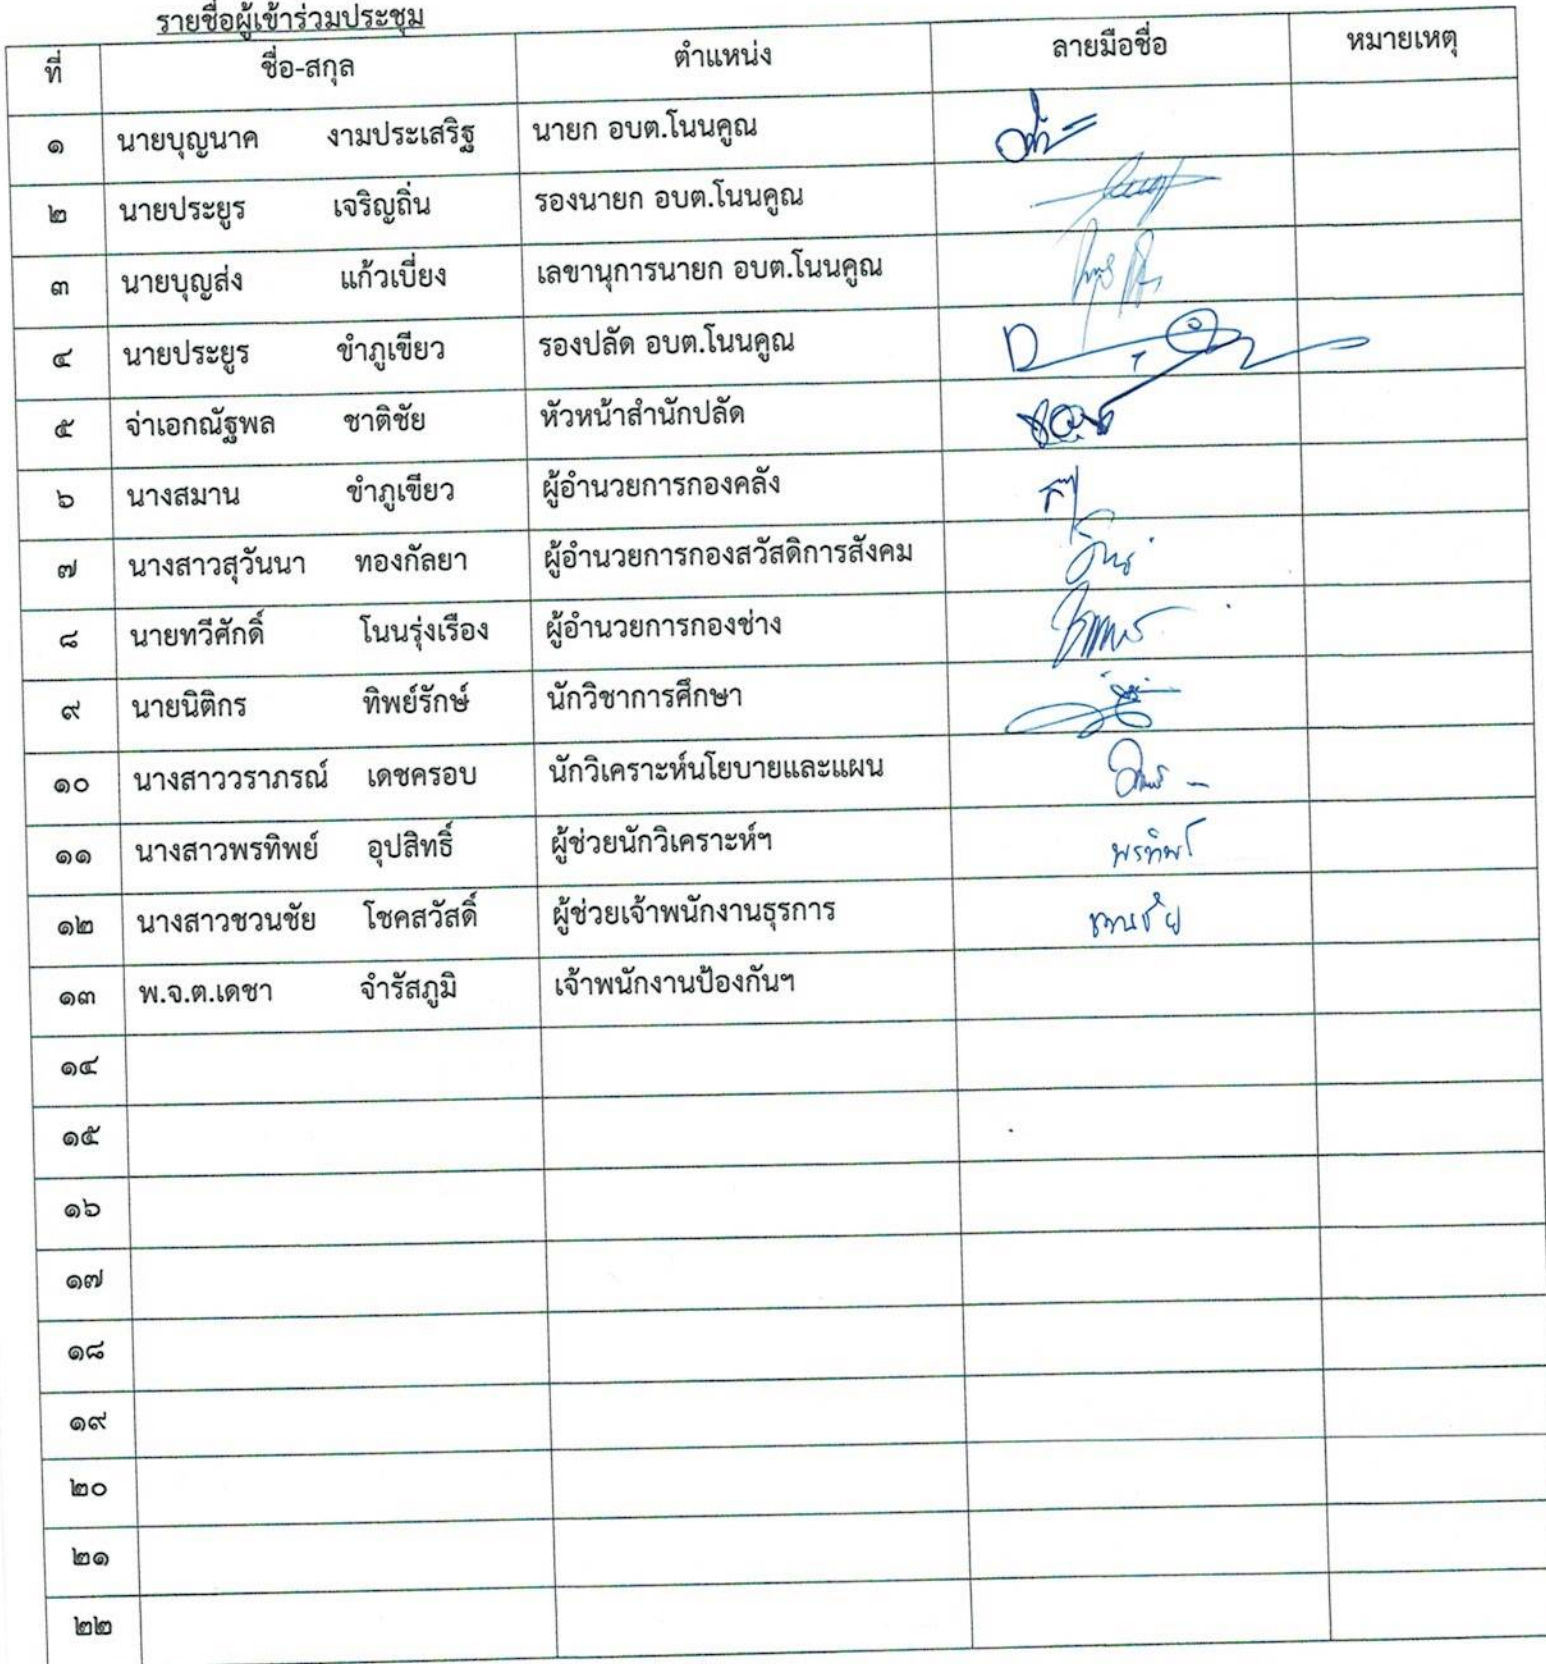 รายชื่อผู้เข้าร่วมประชุม
ที่ ชื่อ-สกุล ตำแหน่ง ลายมือชื่อ หมายเหตุ
๑ นายบุญนาค งามประเสริฐ นายก อบต.โนนคูณ
๒ นายประยูร เจริญถิ่น รองนายก อบต.โนนคูณ
๓ นายบุญส่ง แก้วเบี่ยง เลขานุการนายก อบต.โนนคูณ
๔ นายประยูร ขำภูเขียว รองปลัด อบต.โนนคูณ
๕ จ่าเอกณัฐพล ชาติชัย หัวหน้าสำนักปลัด
๖ นางสมาน ขำภูเขียว ผู้อำนวยการกองคลัง
๗ นางสาวสุวันนา ทองกัลยา ผู้อำนวยการกองสวัสดิการสังคม
๘ นายทวีศักดิ์ โนนรุ่งเรือง ผู้อำนวยการกองช่าง
๙ นายนิติกร ทิพย์รักษ์ นักวิชาการศึกษา
๑๐ นางสาววราภรณ์ เดชครอบ นักวิเคราะห์นโยบายและแผน
๑๑ นางสาวพรทิพย์ อุปสิทธิ์ ผู้ช่วยนักวิเคราะห์ฯ พรทิพย์
๑๒ นางสาวชวนชัย โชคสวัสดิ์ ผู้ช่วยเจ้าพนักงานธุรการ ชวนชัย
๑๓ พ.จ.ต.เดชา จำรัสภูมิ เจ้าพนักงานป้องกันฯ
๑๔
๑๕
๑๖
๑๗
๑๘
๑๙
๒๐
๒๑
๒๒